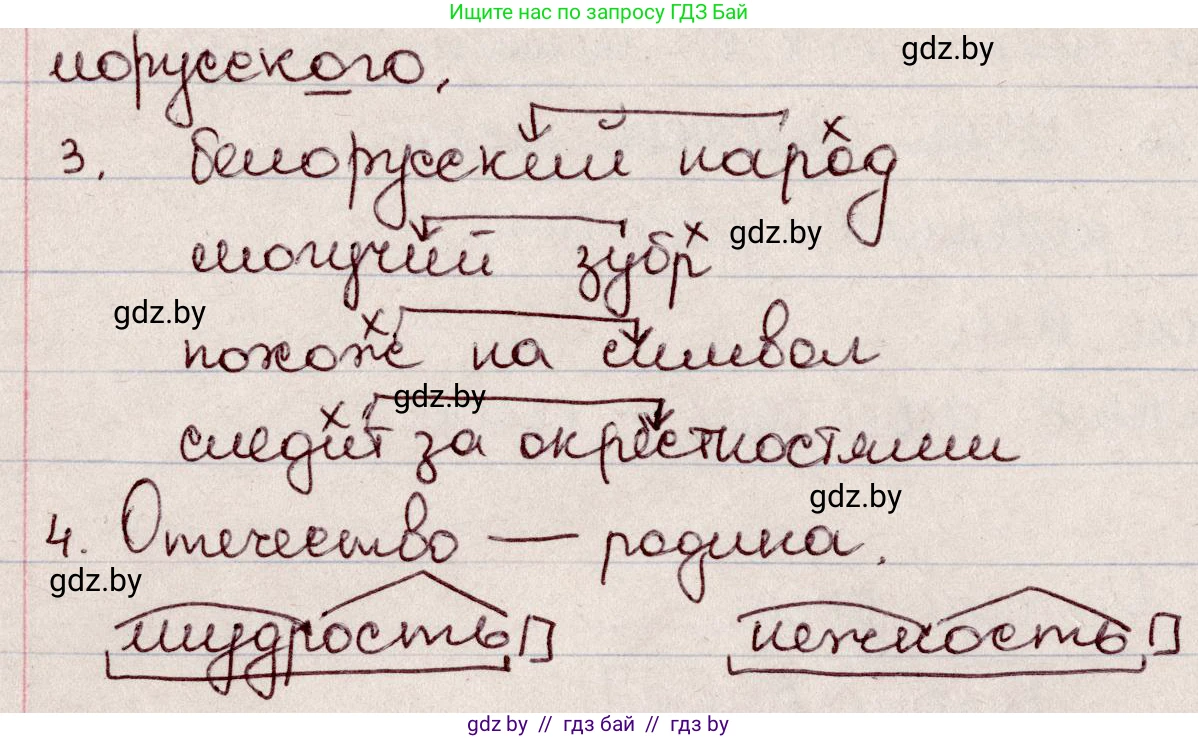 Ищите нас по запросу ГДЗ Бай
gdz.by
лорусского.
3. белорусский народ
могучий зубр
gdz.by
gdz.by
похож на символ
gdz.by
следит за окрестностями
gdz.by
4. Отечество — родина.
gdz.by
мудрость нежность
gdz.by // гдз бай // гдз by